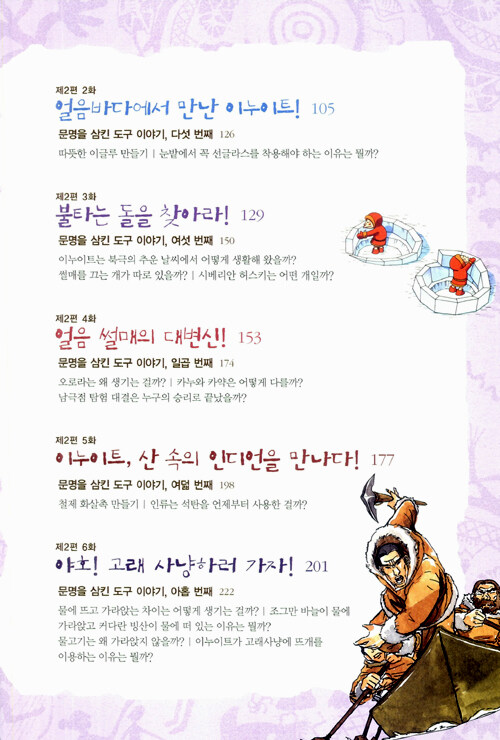 제2편 2화
얼음바다에서 만난 이누이트! 105
문명을 삼킨 도구 이야기, 다섯 번째 126
따뜻한 이글루 만들기 | 눈밭에서 꼭 선글라스를 착용해야 하는 이유는 뭘까?
제2편 3화
불타는 돌을 찾아라! 129
문명을 삼킨 도구 이야기, 여섯 번째 150
이누이트는 북극의 추운 날씨에서 어떻게 생활해 왔을까?
썰매를 끄는 개가 따로 있을까? | 시베리안 허스키는 어떤 개일까?
제2편 4화
얼음 썰매의 대변신! 153
문명을 삼킨 도구 이야기, 일곱 번째 174
오로라는 왜 생기는 걸까? | 카누와 카약은 어떻게 다를까?
남극점 탐험 대결은 누구의 승리로 끝났을까?
제2편 5화
이누이트, 산 속의 인디언을 만나다! 177
문명을 삼킨 도구 이야기, 여덟 번째 198
철제 화살촉 만들기 | 인류는 석탄을 언제부터 사용한 걸까?
제2편 6화
야호! 고래 사냥하러 가자! 201
문명을 삼킨 도구 이야기, 아홉 번째 222
물에 뜨고 가라앉는 차이는 어떻게 생기는 걸까? | 조그만 바늘이 물에
가라앉고 커다란 빙산이 물에 떠 있는 이유는 뭘까?
물고기는 왜 가라앉지 않을까? | 이누이트가 고래사냥에 뜨개를
이용하는 이유는 뭘까?